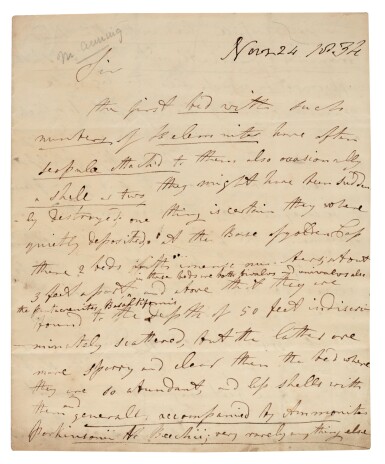 M Anning
Novr 24 1832
Sir
the first bed with such
numbers of Belemnites have often
scapula attachd to them also occasionally
a shell as two they might have been sudden
ly destroyed one thing is certain they where
quietly deposited at the Base of golden Cap
there 2 beds about
in these beds are both
3 feet apart and above that they are
the
found to the depths of 50 feet indiscri
minately scattered, but the latter are
more sparry and clear then the bed where
they are so abundant, and less shells with
them generally accompanied by Ammonites
Parkinsoni &c Bechii; very rarely any thing else